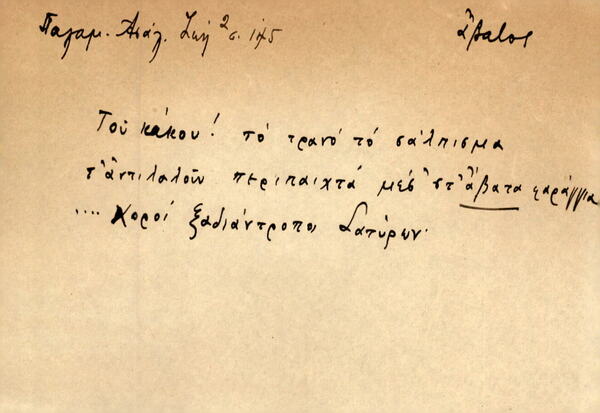 Παλαμ. Ασάλ. Ζωή² σ. 145
ἄβατος
Τοῦ κάκου! τὸ τρανὸ τὸ σάλπισμα
τ' ἀντιλαλοῦν περιπαιχτὰ μέσ' στ' ἄβατα φαράγγια
.... Χοροὶ ξαδιάντροποι Σατύρων.